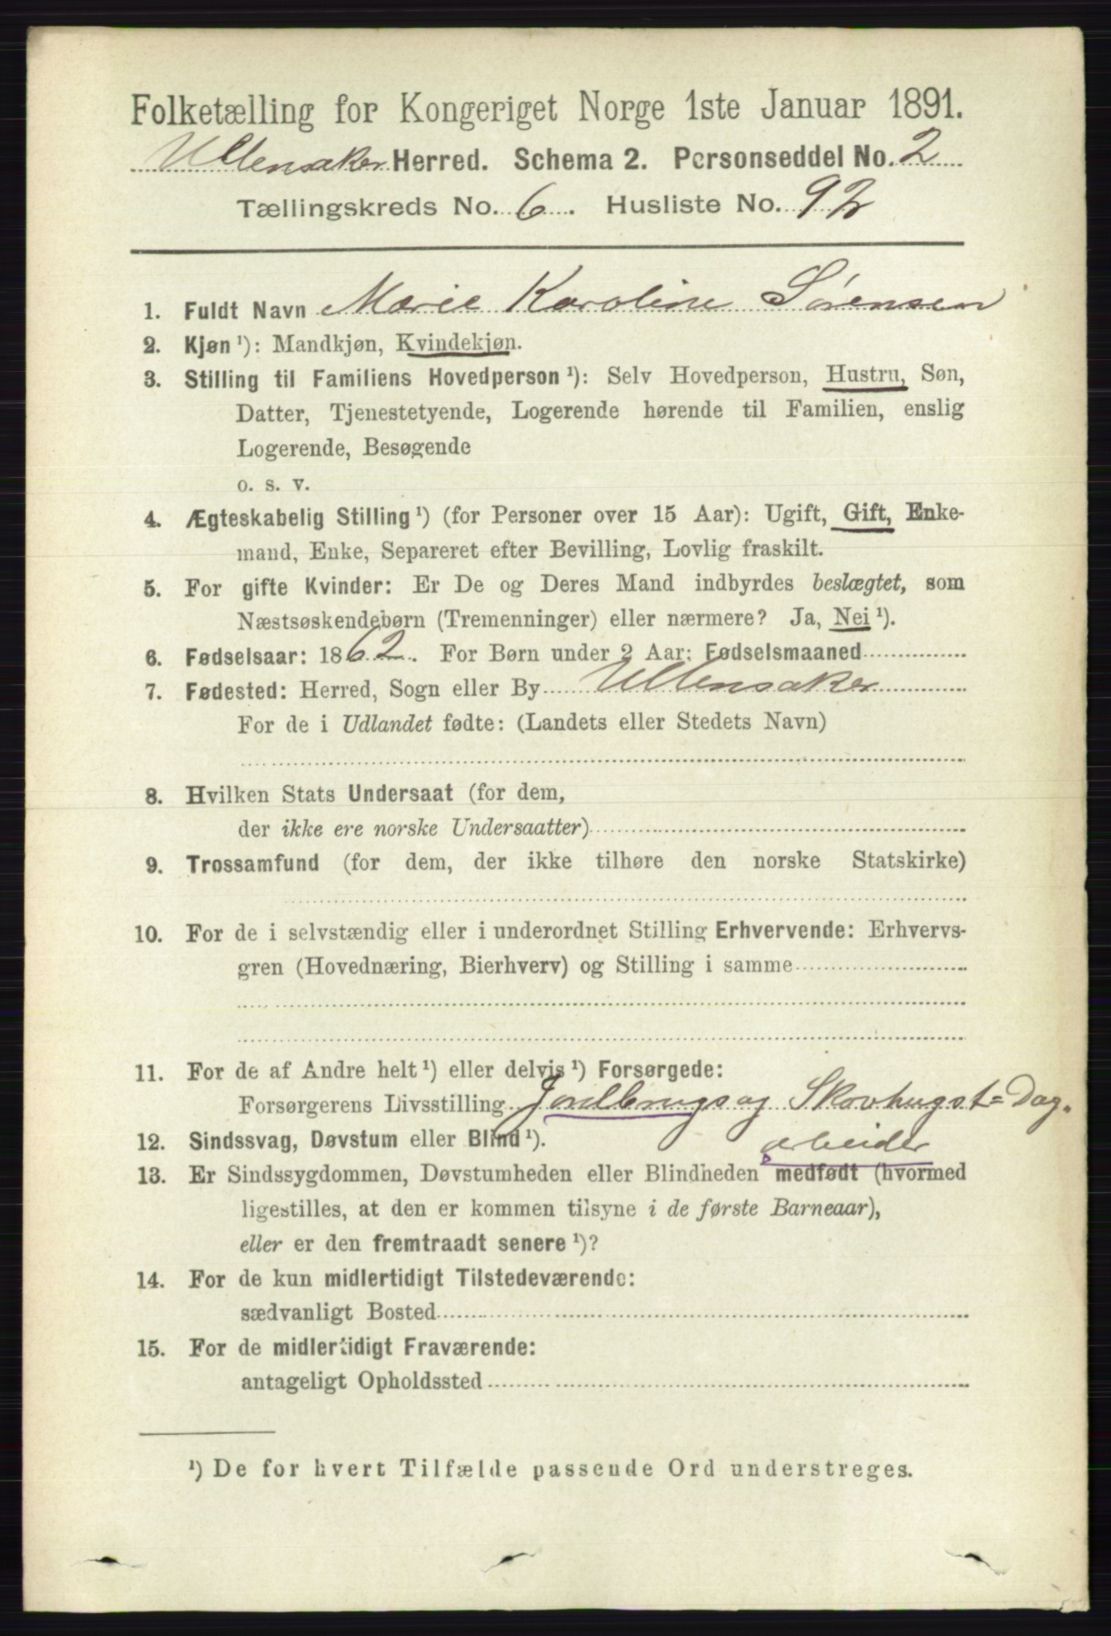 Folketælling for Kongeriget Norge 1ste Januar 1891.
Ullensaker Herred. Schema 2. Personseddel No. 2
Tællingskreds No. 6. Husliste No. 92
1. Fuldt Navn Marie Karoline Sørensen
2. Kjøn ¹): Mandkjøn, Kvindekjøn.
3. Stilling til Familiens Hovedperson ¹): Selv Hovedperson, Hustru, Søn,
Datter, Tjenestetyende, Logerende hørende til Familien, enslig
Logerende, Besøgende
o. s. v.
4. Ægteskabelig Stilling ¹) (for Personer over 15 Aar): Ugift, Gift, Enke-
mand, Enke, Separeret efter Bevilling, Lovlig fraskilt.
5. For gifte Kvinder: Er De og Deres Mand indbyrdes beslægtet, som
Næstsøskendebørn (Tremenninger) eller nærmere? Ja, Nei ¹).
6. Fødselsaar: 1862. For Børn under 2 Aar: Fødselsmaaned
7. Fødested: Herred, Sogn eller By Ullensaker
For de i Udlandet fødte: (Landets eller Stedets Navn)
8. Hvilken Stats Undersaat (for dem,
der ikke ere norske Undersaatter)
9. Trossamfund (for dem, der ikke tilhøre den norske Statskirke)
10. For de i selvstændig eller i underordnet Stilling Erhvervende: Erhvervs-
gren (Hovednæring, Bierhverv) og Stilling i samme
11. For de af Andre helt ¹) eller delvis ¹) Forsørgede:
Forsørgerens Livsstilling Jordbrugs og Skovhugst= Dag-
12. Sindssvag, Døvstum eller Blind ¹). arbeider
13. Er Sindssygdommen, Døvstumheden eller Blindheden medfødt (hvormed
ligestilles, at den er kommen tilsyne i de første Barneaar),
eller er den fremtraadt senere ¹)?
14. For de kun midlertidigt Tilstedeværende:
sædvanligt Bosted
15. For de midlertidigt Fraværende:
antageligt Opholdssted
¹) De for hvert Tilfælde passende Ord understreges.